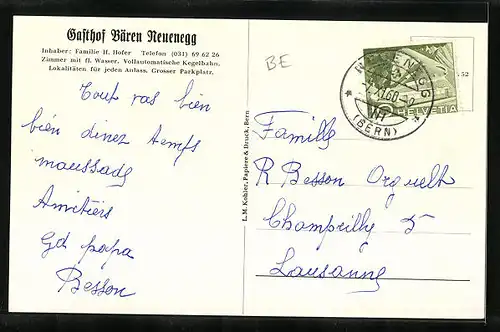 Gasthof Bären Neuenegg
Inhaber: Familie H. Hofer Telefon (031) 69 62 26
Zimmer mit fl. Wasser. Vollautomatische Kegelbahn.
Lokalitäten für jeden Anlass. Grosser Parkplatz.
Tout vas bien
bién dinez temps
maussade
Amitiers
Gd papa
Besson
L. M. Kohler, Papiere & Druck, Bern
BE
NEUENEGG
(BERN)
HELVETIA
52
Famille
R Besson
Champrilly 5
Lausanne